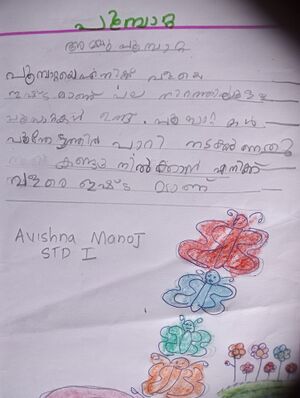 പൂമ്പാറ്റ
പൂമ്പാറ്റയെ എനിക്ക് വളരെ
ഇഷ്ടമാണ് പല നിറത്തിലുള്ള
പൂമ്പാറ്റകൾ ഉണ്ട്. പൂമ്പാറ്റകൾ
പാറി നടക്കുന്നത്
കണ്ടു നിൽക്കാൻ എനിക്ക്
വളരെ ഇഷ്ട മാണ്
Avishna Manoj
STD I